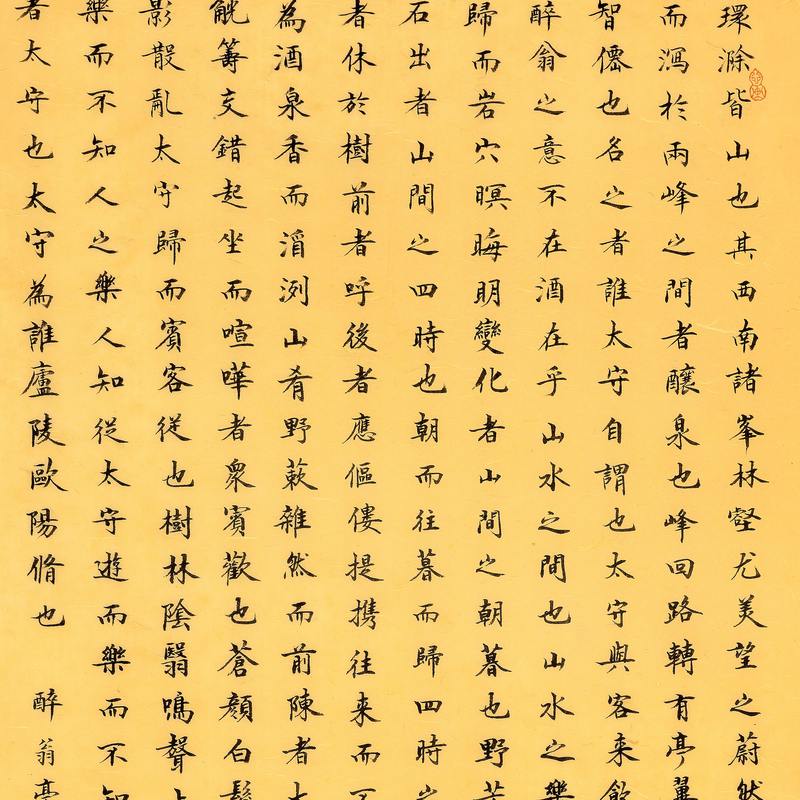 環滁皆山也其西南諸峯林壑尤美望之蔚然
而瀉於兩峰之間者釀泉也峰回路轉有亭翼
智僊也名之者誰太守自謂也太守與客来飲
醉翁之意不在酒在乎山水之間也山水之樂
歸而岩穴暝晦明變化者山間之朝暮也野芳
石出者山間之四時也朝而往暮而歸四時之
者休於樹前者呼後者應傴僂提携往来而不
為酒泉香而酒洌山肴野蔌雜然而前陳者太
觥籌交錯起坐而喧嘩者衆賓歡也蒼顏白髮
影散亂太守歸而賓客從也樹林陰翳鳴聲上
樂而不知人之樂人知從太守遊而樂而不知
者太守也太守為誰廬陵歐陽脩也 醉翁亭